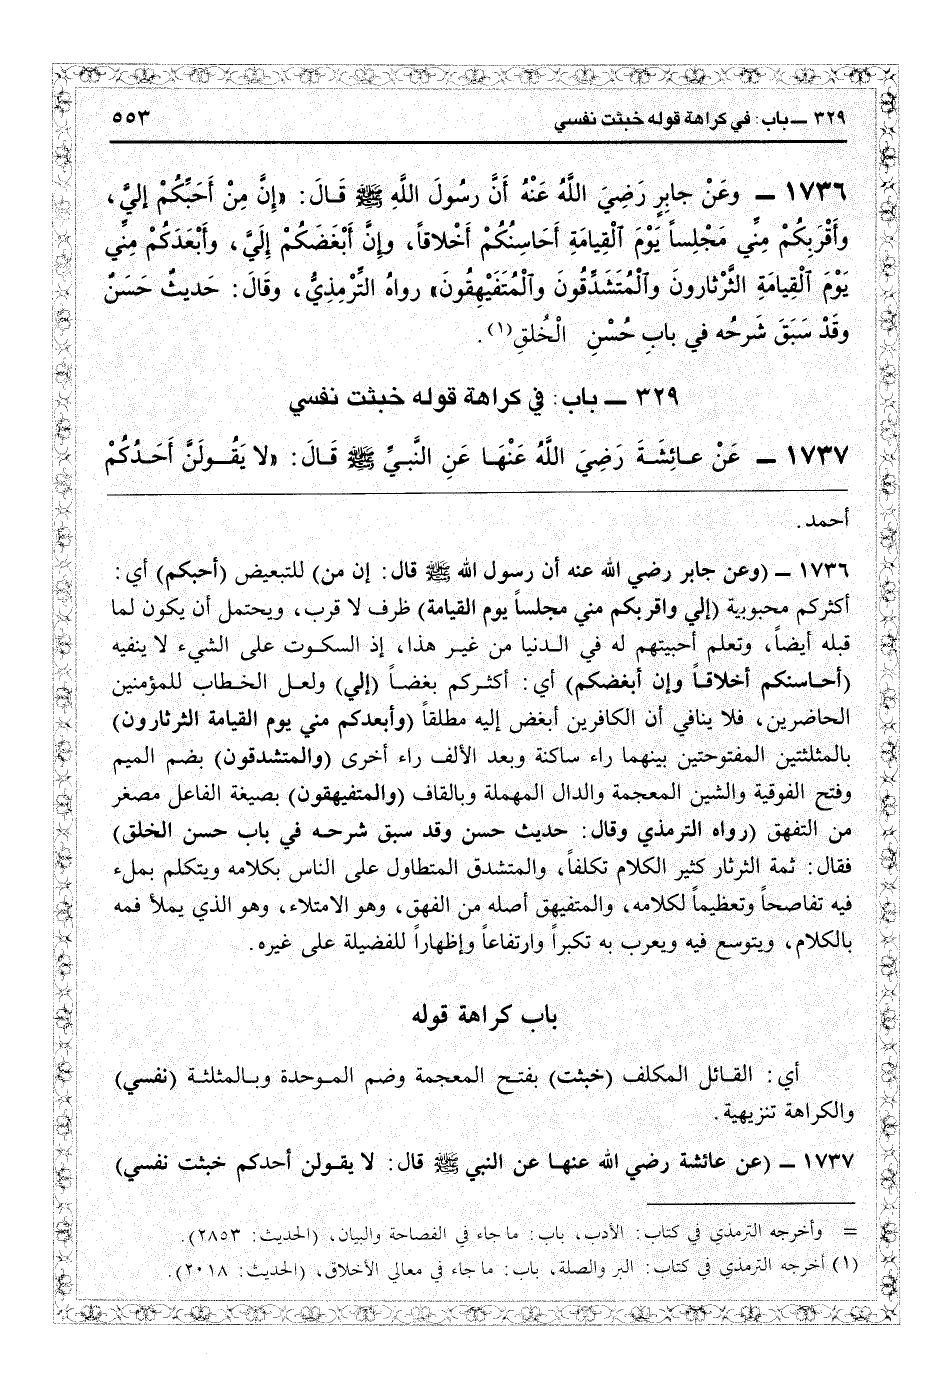 ٣٢٩ ـ باب: في كراهة قوله خبثت نفسي ٥٥٣
١٧٣٦ ـ وعَنْ جابِرٍ رَضِيَ اللَّهُ عَنْهُ أَنَّ رسُولَ اللَّهِ ﷺ قَالَ: «إِنَّ مِنْ أَحَبِّكُمْ إِليَّ،
وأَقْرَبِكُمْ مِنِّي مَجْلِساً يَوْمَ ٱلْقِيامَةِ أَحَاسِنُكُمْ أَخْلاقاً، وإِنَّ أَبْغَضَكُمْ إِلَيَّ، وأَبْعَدَكُمْ مِنِّي
يَوْمَ ٱلْقِيامَةِ الثَّرْثارونَ وٱلْمُتَشَدِّقُونَ وٱلْمُتَفَيْهِقُونَ» رواهُ التِّرْمِذِيُّ، وقَالَ: حَديثٌ حَسَنٌ
وقَدْ سَبَقَ شَرحُه في بابِ حُسْنِ الْخُلقِ(١).
٣٢٩ ـ باب: في كراهة قوله خبثت نفسي
١٧٣٧ ـ عَنْ عـائِشَـةَ رَضِيَ اللَّهُ عَنْهَـا عَنِ النَّبـيِّ ﷺ قَـالَ: «لا يَقُـولَنَّ أَحَـدُكُمْ
أحمد.
١٧٣٦ ـ (وعن جابر رضي الله عنه أن رسول الله ﷺ قال: إن من) للتبعيض (أحبكم) أي:
أكثركم محبوبية (إلي واقربكم مني مجلساً يوم القيامة) ظرف لا قرب، ويحتمل أن يكون لما
قبله أيضاً، وتعلم أحبيتهم له في الـدنيا من غيـر هذا، إذ السكـوت على الشيء لا ينفيه
(أحـاسنكم أخلاقـاً وإن أبغضكم) أي: أكثـركم بغضـاً (إلي) ولعـل الخـطاب للمؤمنين
الحاضرين، فلا ينافي أن الكافرين أبغض إليه مطلقاً (وأبعدكم مني يوم القيامة الثرثارون)
بالمثلثتين المفتوحتين بينهما راء ساكنة وبعد الألف راء أخرى (والمتشدقون) بضم الميم
وفتح الفوقية والشين المعجمة والدال المهملة وبالقاف (والمتفيهقون) بصيغة الفاعل مصغر
من التفهق (رواه الترمذي وقال: حديث حسن وقد سبق شرحـه في باب حسن الخلق)
فقال: ثمة الثرثار كثير الكلام تكلفاً، والمتشدق المتطاول على الناس بكلامه ويتكلم بملء
فيه تفاصحاً وتعظيماً لكلامه، والمتفيهق أصله من الفهق، وهو الامتلاء، وهو الذي يملأ فمه
بالكلام، ويتوسع فيه ويعرب به تكبراً وارتفاعاً وإظهاراً للفضيلة على غيره.
باب كراهة قوله
أي: القـائل المكلف (خبثت) بفتـح المعجمة وضم المـوحدة وبـالمثلثة (نفسي)
والكراهة تنزيهية.
١٧٣٧ ـ (عن عائشة رضي الله عنهـا عن النبي ﷺ قال: لا يقـولن أحدكم خبثت نفسي)
= وأخرجه الترمذي في كتاب: الأدب، باب: ما جاء في الفصاحة والبيان، (الحديث: ٢٨٥٣).
(١) أخرجه الترمذي في كتاب: البر والصلة، باب: ما جاء في معالي الأخلاق، (الحديث: ٢٠١٨).